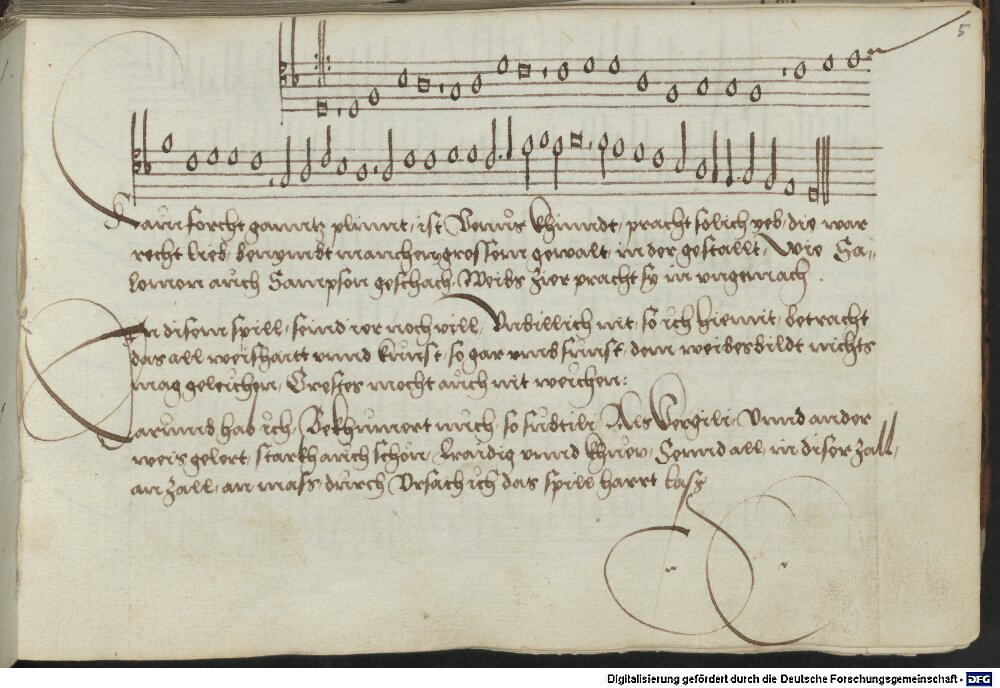 5
Kaum forcht ganntz plinnt, ist Venus khinndt, pracht solich yeb, die war
recht lieb, bezwindt manchen, grossem gewalt, in der gestallt, Wie Sa-
lomon auch Sampson geschach, Weibs zier pracht sy in ungemach.
In disem spill, seind ier noch vill, Unbillich nit, so ich hiemit, betracht
das all weishaitt unnd kunst, so gar umb sunst, dem weibesbildt nichts
mag geleichen, Trostes mocht auch nit weichen:
Darumb hab ich, Bekhumert mich, so subtili, Als Vergili, Unnd ander
weis gelert, starkh auch schön, Fraidig unnd khuen, Sennd all, in diser zall,
an zall, an mass, durch Ursach ich das spill harrt lass
Digitalisierung gefördert durch die Deutsche Forschungsgemeinschaft - DFG